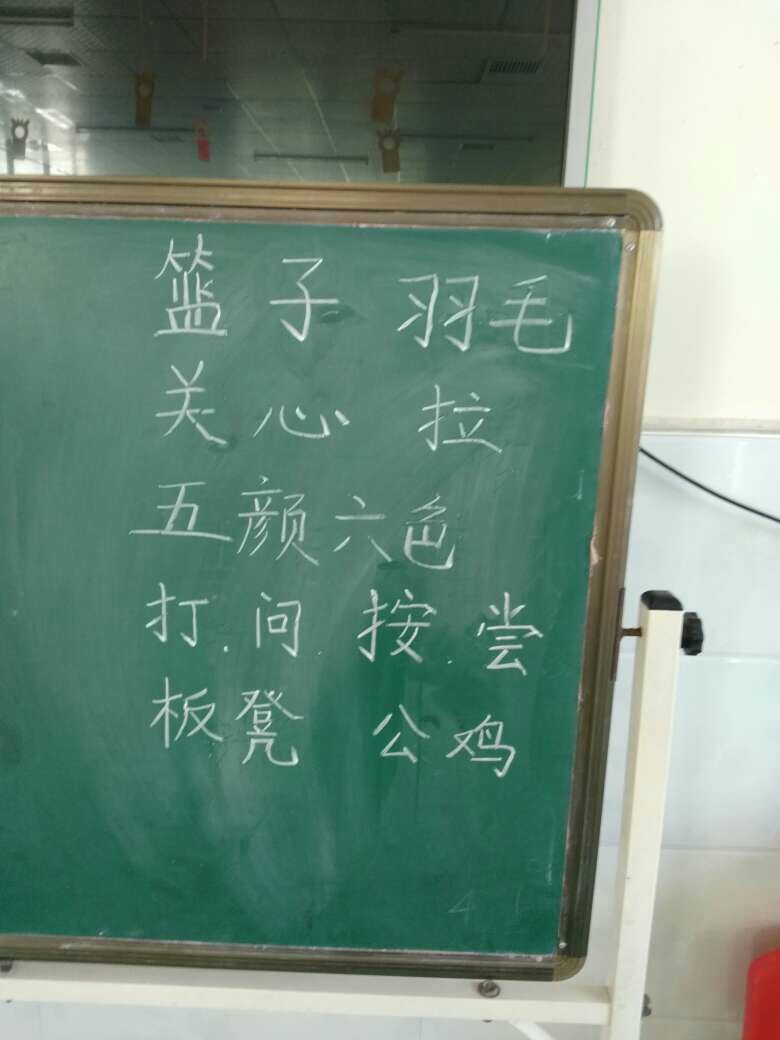 篮子 羽毛
关心 拉
五颜六色
打.问.按.尝
板凳 公鸡